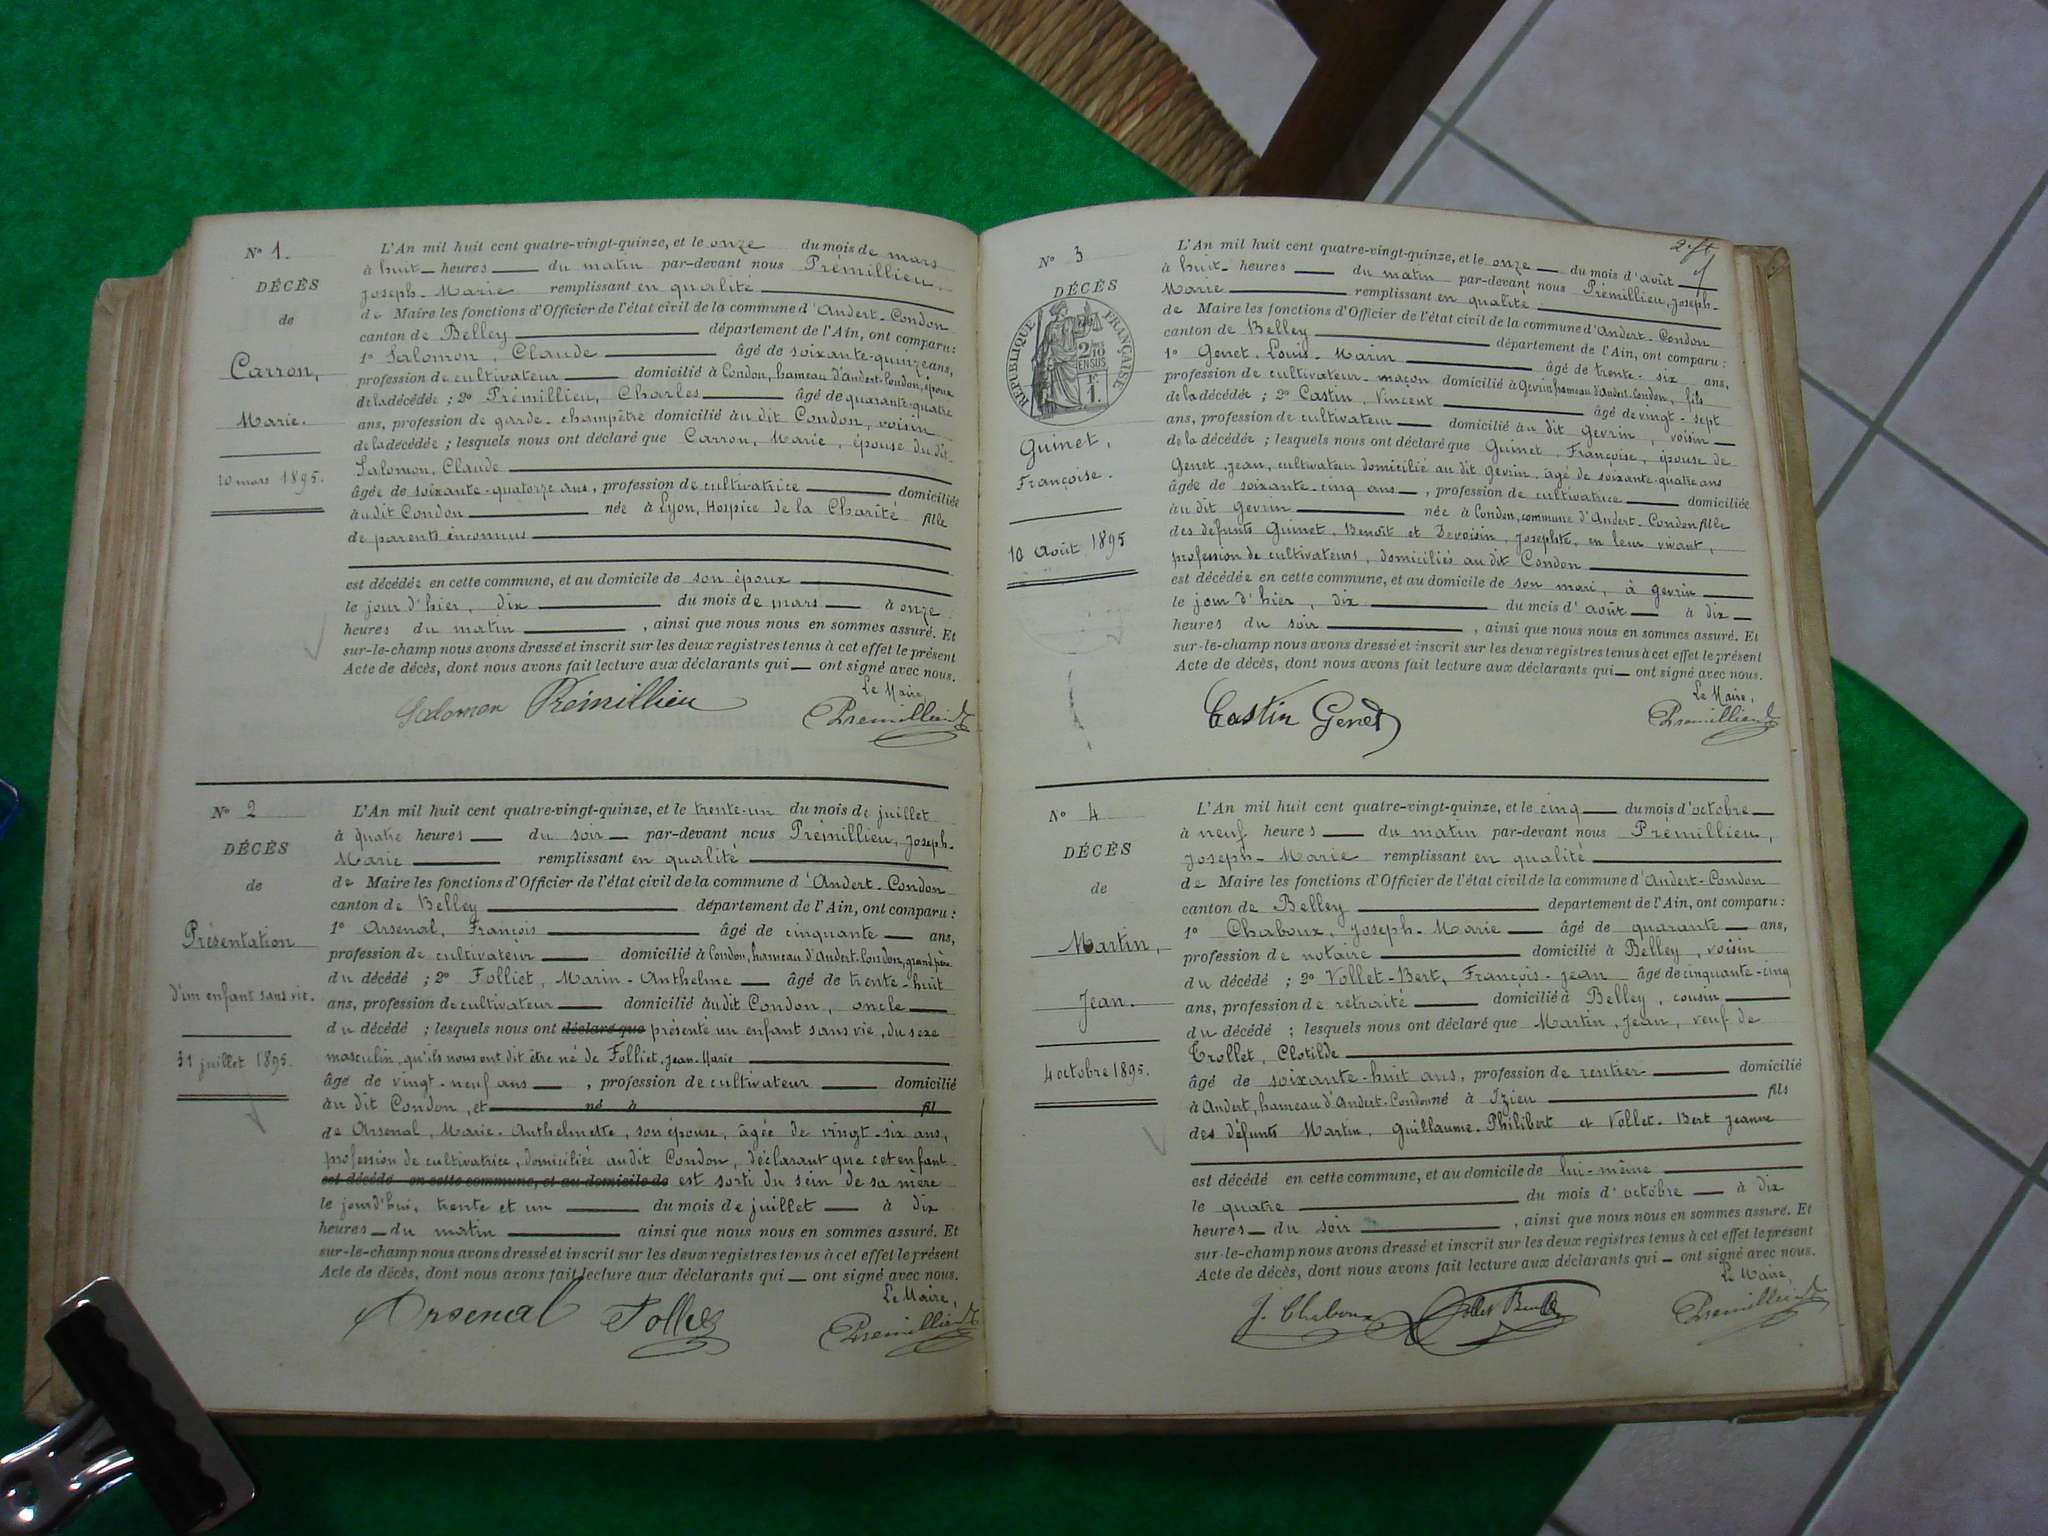 N° 1.
DÉCÈS
de
Carron,
Marie.
10 mars 1895.
L'An mil huit cent quatre-vingt-quinze, et le onze du mois de mars
à huit heures du matin par-devant nous Prémillieu,
Joseph-Marie remplissant en qualité
de Maire les fonctions d'Officier de l'état civil de la commune d'Andert-Condon
canton de Belley département de l'Ain, ont comparu :
1° Salomon, Claude âgé de soixante-quinze ans,
profession de cultivateur domicilié à Condon, hameau d'Andert-Condon, époux
de la décédée ; 2° Prémillieu, Charles âgé de quarante-quatre
ans, profession de garde-champêtre domicilié au dit Condon, voisin
de la décédée ; lesquels nous ont déclaré que Carron, Marie, épouse du dit
Salomon, Claude
âgée de soixante-quatorze ans, profession de cultivatrice domiciliée
au dit Condon née à Lyon, Hospice de la Charité fille
de parents inconnus
est décédée en cette commune, et au domicile de son époux
le jour d'hier, dix du mois de mars à onze
heures du matin , ainsi que nous nous en sommes assuré. Et
sur-le-champ nous avons dressé et inscrit sur les deux registres tenus à cet effet le présent
Acte de décès, dont nous avons fait lecture aux déclarants qui ont signé avec nous.
Le Maire,
Salomon Prémillieu Premillieu
N° 2
DÉCÈS
de
Présentation
d'un enfant sans vie.
31 juillet 1895.
L'An mil huit cent quatre-vingt-quinze, et le trente-un du mois de juillet
à quatre heures du soir par-devant nous Prémillieu, Joseph-
Marie remplissant en qualité
de Maire les fonctions d'Officier de l'état civil de la commune d'Andert-Condon
canton de Belley département de l'Ain, ont comparu :
1° Arsenal, François âgé de cinquante ans,
profession de cultivateur domicilié à Condon, hameau d'Andert-Condon, grand père
du décédé ; 2° Folliet, Marin-Anthelme âgé de trente-huit
ans, profession de cultivateur domicilié au dit Condon, oncle
du décédé ; lesquels nous ont déclaré que présenté un enfant sans vie, du sexe
masculin, qu'ils nous ont dit être né de Folliet, Jean-Marie
âgé de vingt-neuf ans , profession de cultivateur domicilié
au dit Condon, et né à fil
de Arsenal, Marie-Anthelmette, son épouse, âgée de vingt-six ans,
profession de cultivatrice, domiciliée au dit Condon, déclarant que cet enfant
est décédé en cette commune, et au domicile de est sorti du sein de sa mère
le jourd'hui, trente et un du mois de juillet à dix
heures du matin ainsi que nous nous en sommes assuré. Et
sur-le-champ nous avons dressé et inscrit sur les deux registres tenus à cet effet le présent
Acte de décès, dont nous avons fait lecture aux déclarants qui ont signé avec nous.
Le Maire,
Arsenal Folliet Premillieu
N° 3
DÉCÈS
RÉPUBLIQUE FRANÇAISE
2/10
EN SUS
1.
Guinet,
Françoise.
10 Août 1895
L'An mil huit cent quatre-vingt-quinze, et le onze du mois d'août
à huit heures du matin par-devant nous Prémillieu, Joseph-
Marie remplissant en qualité
de Maire les fonctions d'Officier de l'état civil de la commune d'Andert-Condon
canton de Belley département de l'Ain, ont comparu :
1° Genet, Louis-Marin âgé de trente-six ans,
profession de cultivateur-maçon domicilié à Gevrin hameau d'Andert-Condon, fils
de la décédée ; 2° Castin, Vincent âgé de vingt-sept
ans, profession de cultivateur domicilié au dit Gevrin, voisin
de la décédée ; lesquels nous ont déclaré que Guinet, Françoise, épouse de
Genet, Jean, cultivateur domicilié au dit Gevrin, âgé de soixante-quatre ans
âgée de soixante-cinq ans , profession de cultivatrice domiciliée
au dit Gevrin née à Condon, commune d'Andert-Condon fille
des défunts Guinet, Benoît et Devoisin, Josephte, en leur vivant,
profession de cultivateurs, domiciliés au dit Condon
est décédée en cette commune, et au domicile de son mari, à Gevrin
le jour d'hier, dix du mois d'août à dix
heures du soir , ainsi que nous nous en sommes assuré. Et
sur-le-champ nous avons dressé et inscrit sur les deux registres tenus à cet effet le présent
Acte de décès, dont nous avons fait lecture aux déclarants qui ont signé avec nous.
Le Maire,
Castin Genet Premillieu
N° 4
DÉCÈS
de
Martin,
Jean.
4 octobre 1895.
L'An mil huit cent quatre-vingt-quinze, et le cinq du mois d'octobre
à neuf heures du matin par-devant nous Prémillieu,
Joseph-Marie remplissant en qualité
de Maire les fonctions d'Officier de l'état civil de la commune d'Andert-Condon
canton de Belley département de l'Ain, ont comparu :
1° Chaboux, Joseph-Marie âgé de quarante ans,
profession de notaire domicilié à Belley, voisin
du décédé ; 2° Vollet-Bert, François-Jean âgé de cinquante-cinq
ans, profession de retraité domicilié à Belley, cousin
du décédé ; lesquels nous ont déclaré que Martin, Jean, veuf de
Trollet, Clotilde
âgé de soixante-huit ans, profession de rentier domicilié
à Andert, hameau d'Andert-Condon né à Izieu fils
des défunts Martin, Guillaume-Philibert et Vollet-Bert Jeanne
est décédé en cette commune, et au domicile de lui-même
le quatre du mois d'octobre à dix
heures du soir , ainsi que nous nous en sommes assuré. Et
sur-le-champ nous avons dressé et inscrit sur les deux registres tenus à cet effet le présent
Acte de décès, dont nous avons fait lecture aux déclarants qui ont signé avec nous.
Le Maire,
J. Chaboux Vollet Bert Premillieu